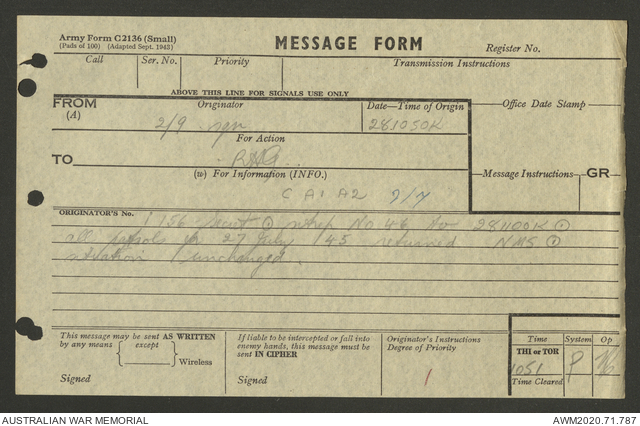 Army Form C2136 (Small)
(Pads of 100) (Adapted Sept. 1942)
MESSAGE FORM
Register No.
Call Ser. No. Priority Transmission Instructions
ABOVE THIS LINE FOR SIGNALS USE ONLY
FROM Originator Date—Time of Origin Office Date Stamp
(A) 2/9 281050K
For Action
TO
(w) For Information (INFO.) Message Instructions GR
C A1 A2 7/7
ORIGINATOR'S No.
I 156 Secret ⊙ Intrep No 46 to 281100K ⊙
all patrols for 27 July 45 returned NMS ⊙
situation unchanged.
This message may be sent AS WRITTEN
by any means except
Wireless
Signed
If liable to be intercepted or fall into
enemy hands, this message must be
sent IN CIPHER
Signed
Originator's Instructions
Degree of Priority
Time System Op
THI or TOR
1051 P
Time Cleared
AUSTRALIAN WAR MEMORIAL AWM2020.71.787